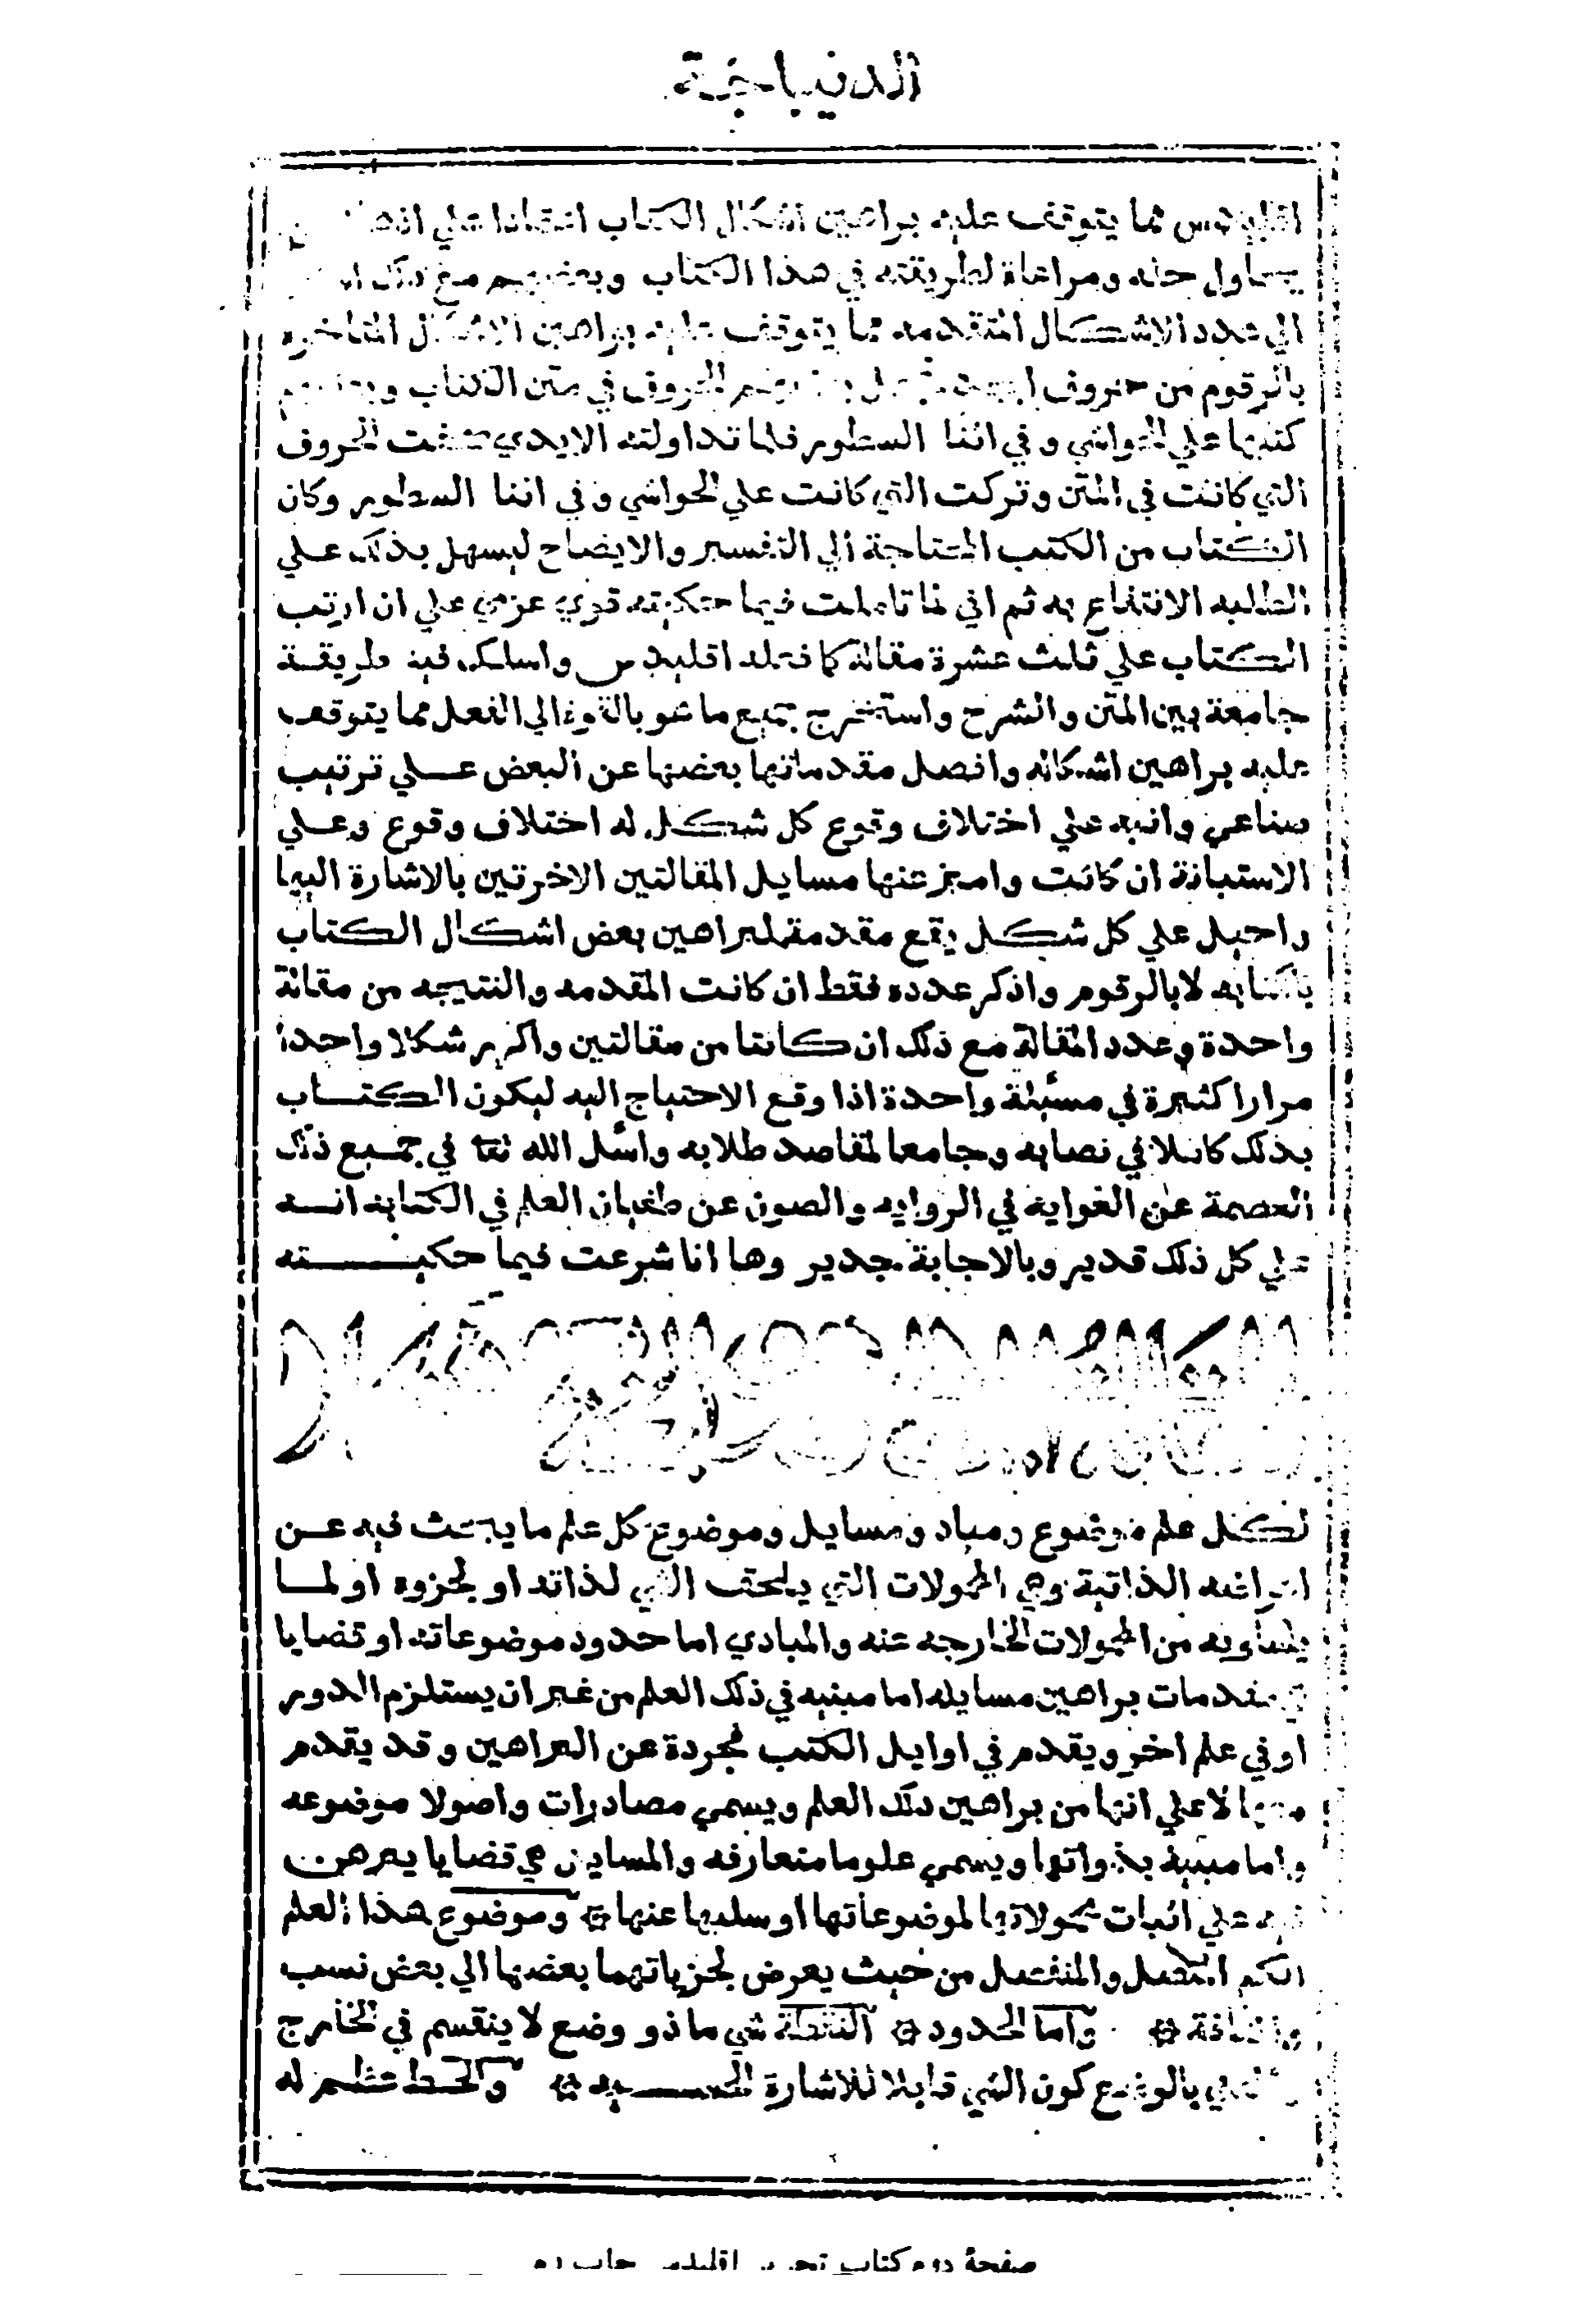 الديباجة
اقليدس مما يتوقف عليه براهين اشكال الكتاب اعتمادا علي
يحاول حله ومراعاة لطريقته في هذا الكتاب وبعضهم مع ذلك
الي عدد الاشكال المتقدمه مما يتوقف عليه براهين الاشكال المتاخره
بالرقوم من حروف الحروف في متن الكتاب
كتبها علي الحواشي و في اثنا السطور فلما تداولته الايدي الحروف
التي كانت في المتن و تركت التي كانت علي الحواشي و في اثنا السطور وكان
الكتاب من الكتب المحتاجة الي التفسير والايضاح ليسهل بذلك علي
الطلبه الانتفاع به ثم اني لما تاملت فيما حكيته قوي عزمي علي ان ارتب
الكتاب علي ثلث عشرة مقالة كما فعله اقليدس واسلك فيه طريقة
جامعة بين المتن والشرح واستخرج جميع ما هو بالقوة الي الفعل مما يتوقف
عليه براهين اشكاله وافصل مقدماتها بعضها عن البعض علي ترتيب
صناعي وانبه علي اختلاف وقوع كل شكل له اختلاف وقوع وعلي
الاستبانة ان كانت واميز عنها مسايل المقالتين الاخرتين بالاشارة اليها
واحيل علي كل شكل يقع مقدمة لبراهين بعض اشكال الكتاب
بالكتابه لا بالرقوم واذكر عدده فقط ان كانت المقدمه والنتيجه من مقالة
واحدة وعدد المقالة مع ذلك ان كانتا من مقالتين واكرر شكلا واحدا
مرارا كثيرة في مسئلة واحدة اذا وقع الاحتياج اليه ليكون الكتاب
بذلك كاملا في نصابه وجامعا لمقاصد طلابه واسٔل الله تعا في جميع ذلك
العصمة عن الغواية في الروايه والصون عن طغيان العلم في الكتابه انه
علي كل ذلك قدير وبالاجابة جدير وها انا شرعت فيما حكيته
لكل علم موضوع ومباد ومسايل وموضوع كل علم ما يبحث فيه عن
اعراضه الذاتية وهي المحمولات التي يلحق الشي لذاته او لجزوه او لما
يساويه من المحمولات الخارجه عنه والمبادي اما حدود موضوعاته او قضايا
هي مقدمات براهين مسايله اما مبنيه في ذلك العلم من غير ان يستلزم الدور
او في علم اخر ويقدم في اوايل الكتب مجردة عن البراهين وقد يقدم
منها لا علي انها من براهين ذلك العلم ويسمي مصادرات واصولا موضوعه
واما مبينة بذواتها ويسمي علوما متعارفه والمسايل هي قضايا يبرهن
فيه علي اثبات محمولاتها لموضوعاتها او سلبها عنها ۞ وموضوع هذا العلم
الكم المتصل والمنفصل من حيث يعرض لجزياتهما بعضها الي بعض نسب
واضافة ۞ واما الحدود ۞ النقطة شي ما ذو وضع لا ينقسم في الخارج
بالوضع كون الشي قابلا للاشارة الحسيه ۞ والخط عظم له
صفحهٔ دوم کتاب تحریر اقلیدس چاپ رم